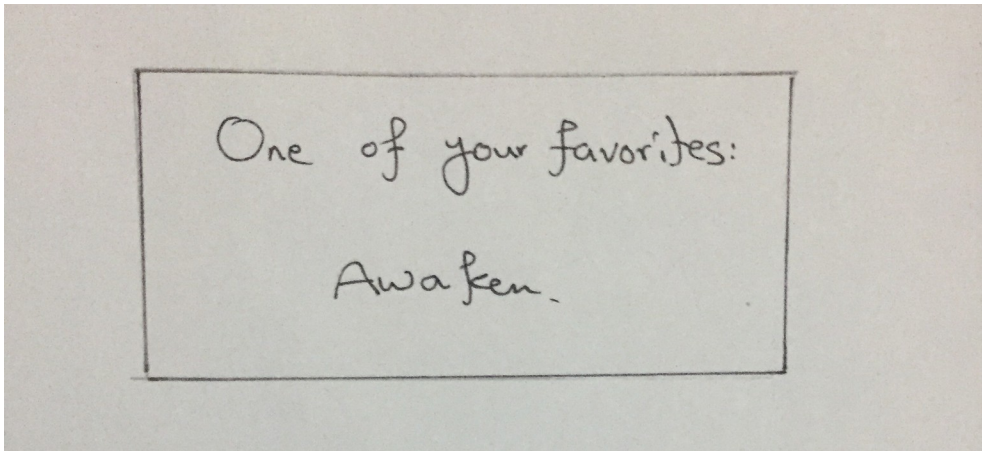 One of your favorites:
Awaken.